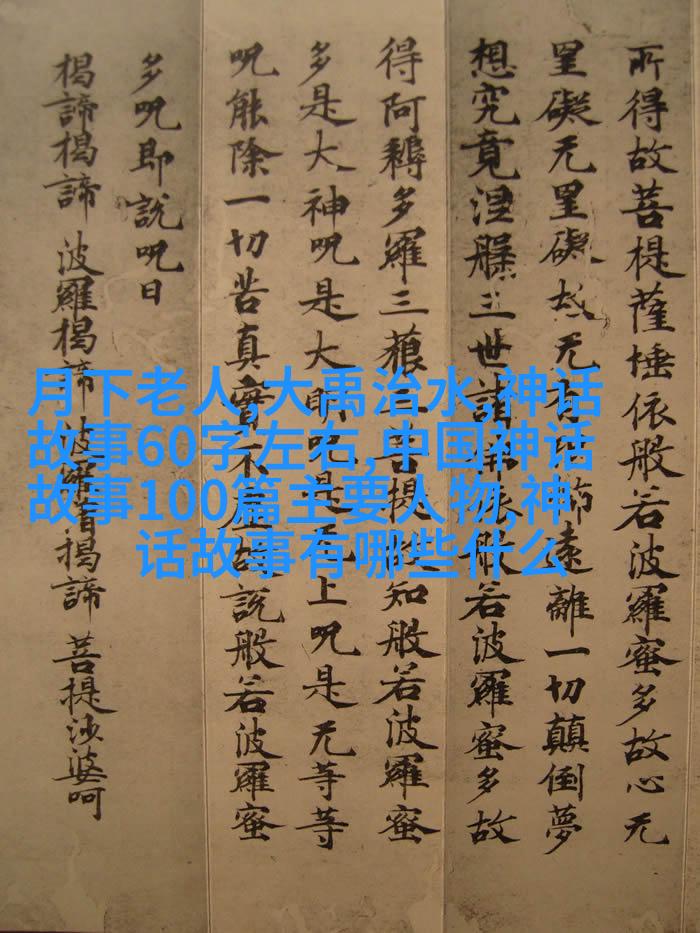 所得故菩提薩埵依般若波羅蜜多故心无
罣礙无罣礙故无有怖遠離一切顛倒夢
想究竟涅槃三世諸佛依般若波羅蜜多故
得阿耨多羅三藐三菩提故知般若波羅蜜
多是大神呪是大明呪是无上呪是无等等
呪能除一切苦真實不虛故說般若波羅蜜
多呪即說呪曰
揭諦揭諦 波羅揭諦 波羅僧揭諦 菩提沙婆呵
月下老人,大禹治水,神话
故事60字左右,中国神话
故事100篇主要人物,神
话故事有哪些什么